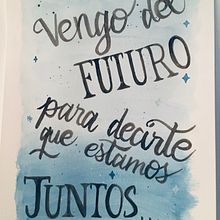 Vengo del
FUTURO
para decirte
que estamos
JUNTOS...